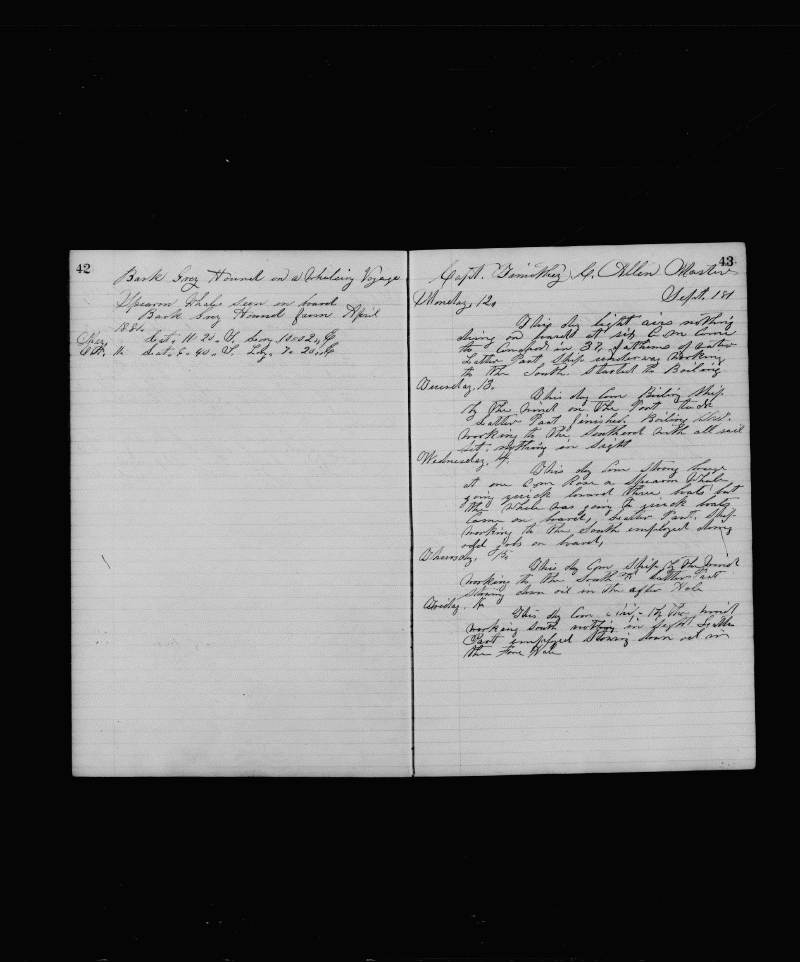 42
Bark Grey Hound on a Whaleing Voyage
Spearm Whale Seen on board
Bark Grey Hound from April
1881.
Lat. 11-20. S. Long. 10-02,
Lat. 6-40. S. Lng. 70-20,
43
Capt. Timothey C. Allen Master
Monday, 12, Sept. 181
This day light airs nothing
doing on board at six
the in 32 fathoms of water
Latter Part Ship underway working
to the South started the Boiling
Teuesday, 13.
This day Com Boiling Ship
by the wind on the Port tack
Latter Part finished Boiling Ship
working to the Southerd with all sail
set: nothing in sight
Wednesday, 14.
This day Com Strong breeze
at one Rose a Spearm Whale
going quick lowerd three boats but
the Whale was going to quick boats
Came on board, Latter Part. Ship
working to the South employed doing
odd jobs on board,
Thursday, 15.
This day Com Ship by the Wind
working to the South Latter Part
stowing down oil in the after Hole
Friday, 16
This day Com by the wind
working south nothing in sight Latter
Part employed Stowing down oil in
the Fore Hole